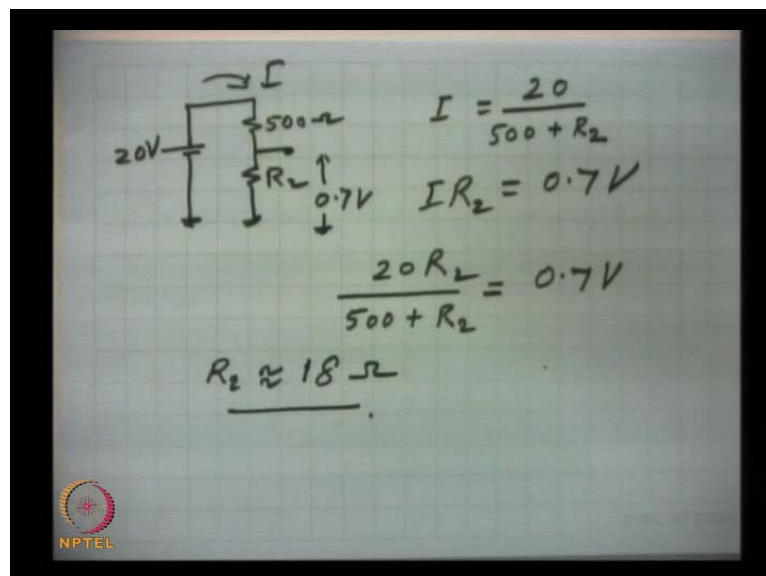 I
500Ω
20V
R₂
0.7V
I = 20 / 500 + R₂
IR₂ = 0.7V
20R₂ / 500 + R₂ = 0.7V
R₂ ≈ 18 Ω
NPTEL